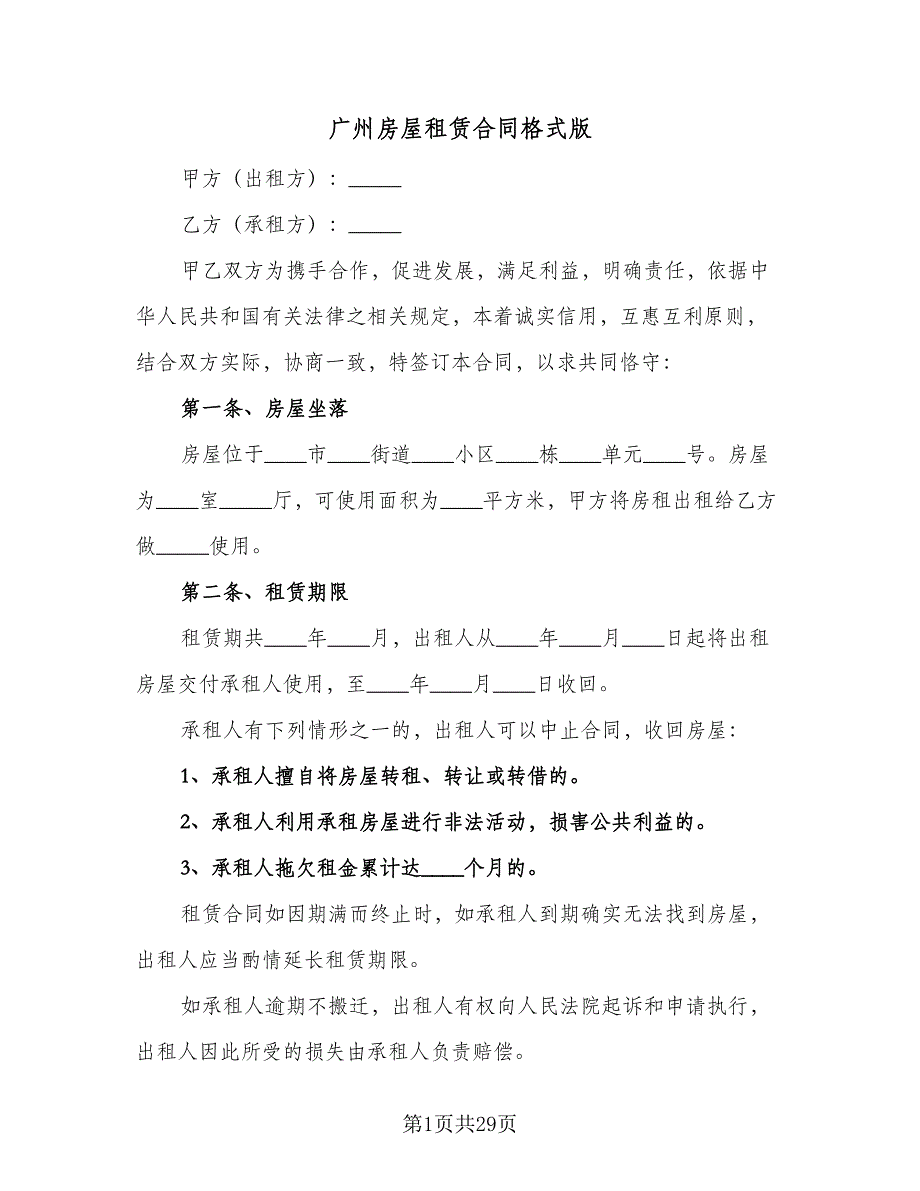 广州房屋租赁合同格式版
甲方（出租方）：_____
乙方（承租方）：_____
甲乙双方为携手合作，促进发展，满足利益，明确责任，依据中
华人民共和国有关法律之相关规定，本着诚实信用，互惠互利原则，
结合双方实际，协商一致，特签订本合同，以求共同恪守：
第一条、房屋坐落
房屋位于____市____街道____小区____栋____单元____号。房屋
为____室_____厅，可使用面积为____平方米，甲方将房租出租给乙方
做_____使用。
第二条、租赁期限
租赁期共____年____月，出租人从____年____月____日起将出租
房屋交付承租人使用，至____年____月____日收回。
承租人有下列情形之一的，出租人可以中止合同，收回房屋：
1、承租人擅自将房屋转租、转让或转借的。
2、承租人利用承租房屋进行非法活动，损害公共利益的。
3、承租人拖欠租金累计达____个月的。
租赁合同如因期满而终止时，如承租人到期确实无法找到房屋，
出租人应当酌情延长租赁期限。
如承租人逾期不搬迁，出租人有权向人民法院起诉和申请执行，
出租人因此所受的损失由承租人负责赔偿。
第1页共29页